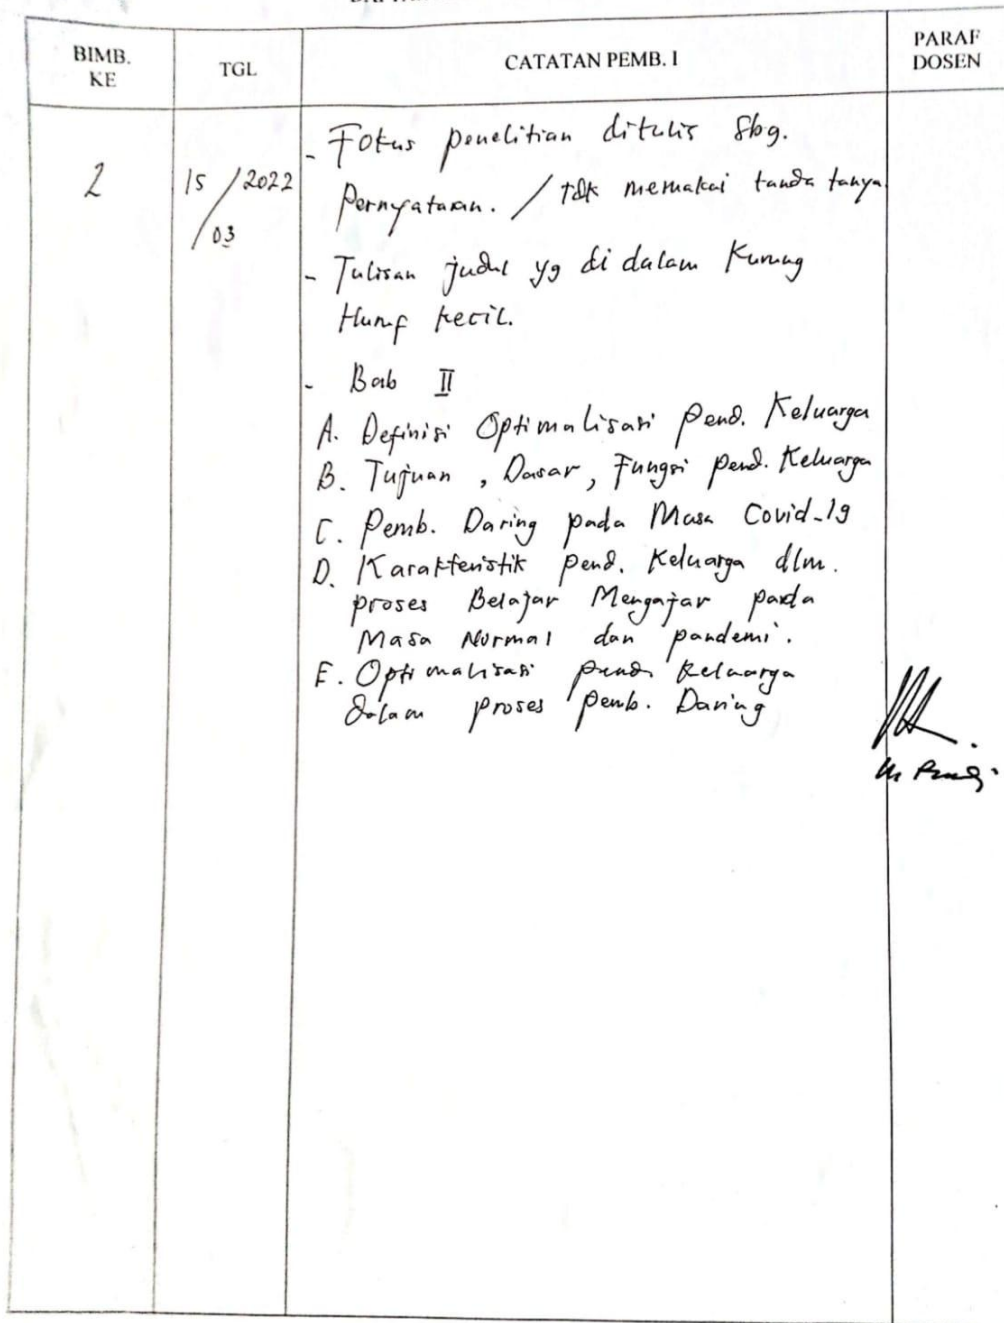 BIMB.
KE
TGL
CATATAN PEMB. I
PARAF
DOSEN
2
15 / 2022
/ 03
- Fokus penelitian ditulis sbg.
Pernyataan. / tdk memakai tanda tanya
- Tulisan judul yg di dalam Kurung
Huruf kecil.
- Bab II
A. Definisi Optimalisasi pend. Keluarga
B. Tujuan, Dasar, Fungsi pend. Keluarga
C. Pemb. Daring pada Masa Covid-19
D. Karakteristik pend. Keluarga dlm.
proses Belajar Mengajar pada
Masa Normal dan pandemi.
E. Optimalisasi pend. Keluarga
dalam proses pemb. Daring